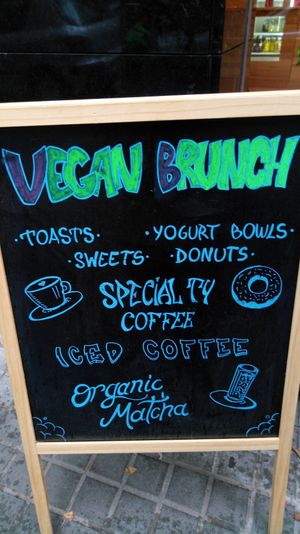 VEGAN BRUNCH
·TOASTS· ·YOGURT BOWLS·
·SWEETS· ·DONUTS·
SPECIALTY
COFFEE
ICED COFFEE
Organic
Matcha